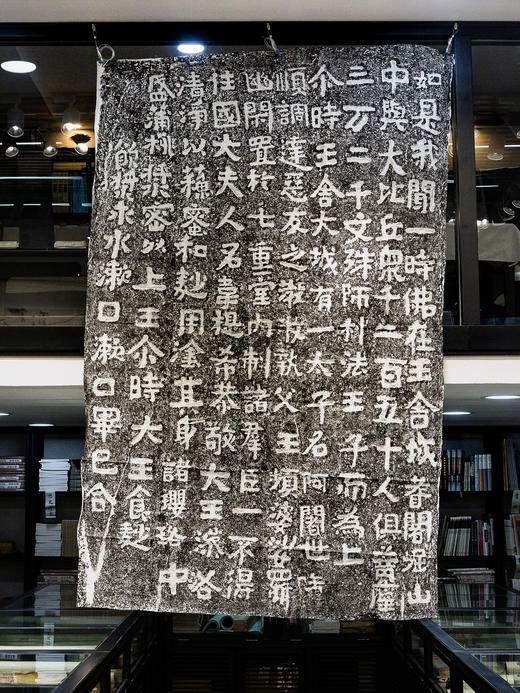 如是我聞一時佛在王舍城耆闍崛山
中與大比丘衆千二百五十人俱菩薩
三万二千文殊師利法王子而為上
尒時王舍大城有一太子名阿闍世
順調達惡友之教收執父王頻婆娑羅
幽閉置於七重室内制諸羣臣一不得
往國大夫人名韋提希恭敬大王澡浴
清淨以蘇蜜和麨用塗其身諸瓔珞中
盛蒲桃漿密以上王尒時大王食麨
飲漿求水漱口漱口畢已合